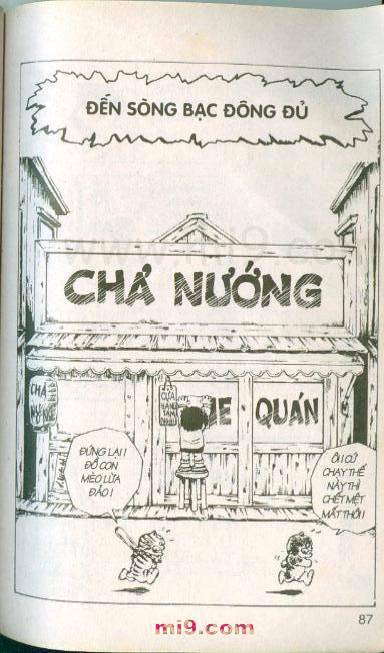 ĐẾN SÒNG BẠC ĐÔNG ĐỦ
CHẢ NƯỚNG
CHẢ
QUÁN
ĐỨNG LẠI!
ĐỒ CON
MÈO LỪA
ĐẢO!
ÔI! CỨ
CHẠY THẾ
NÀY THÌ
CHẾT MỆT
MẤT THÔI!
mi9.com
87